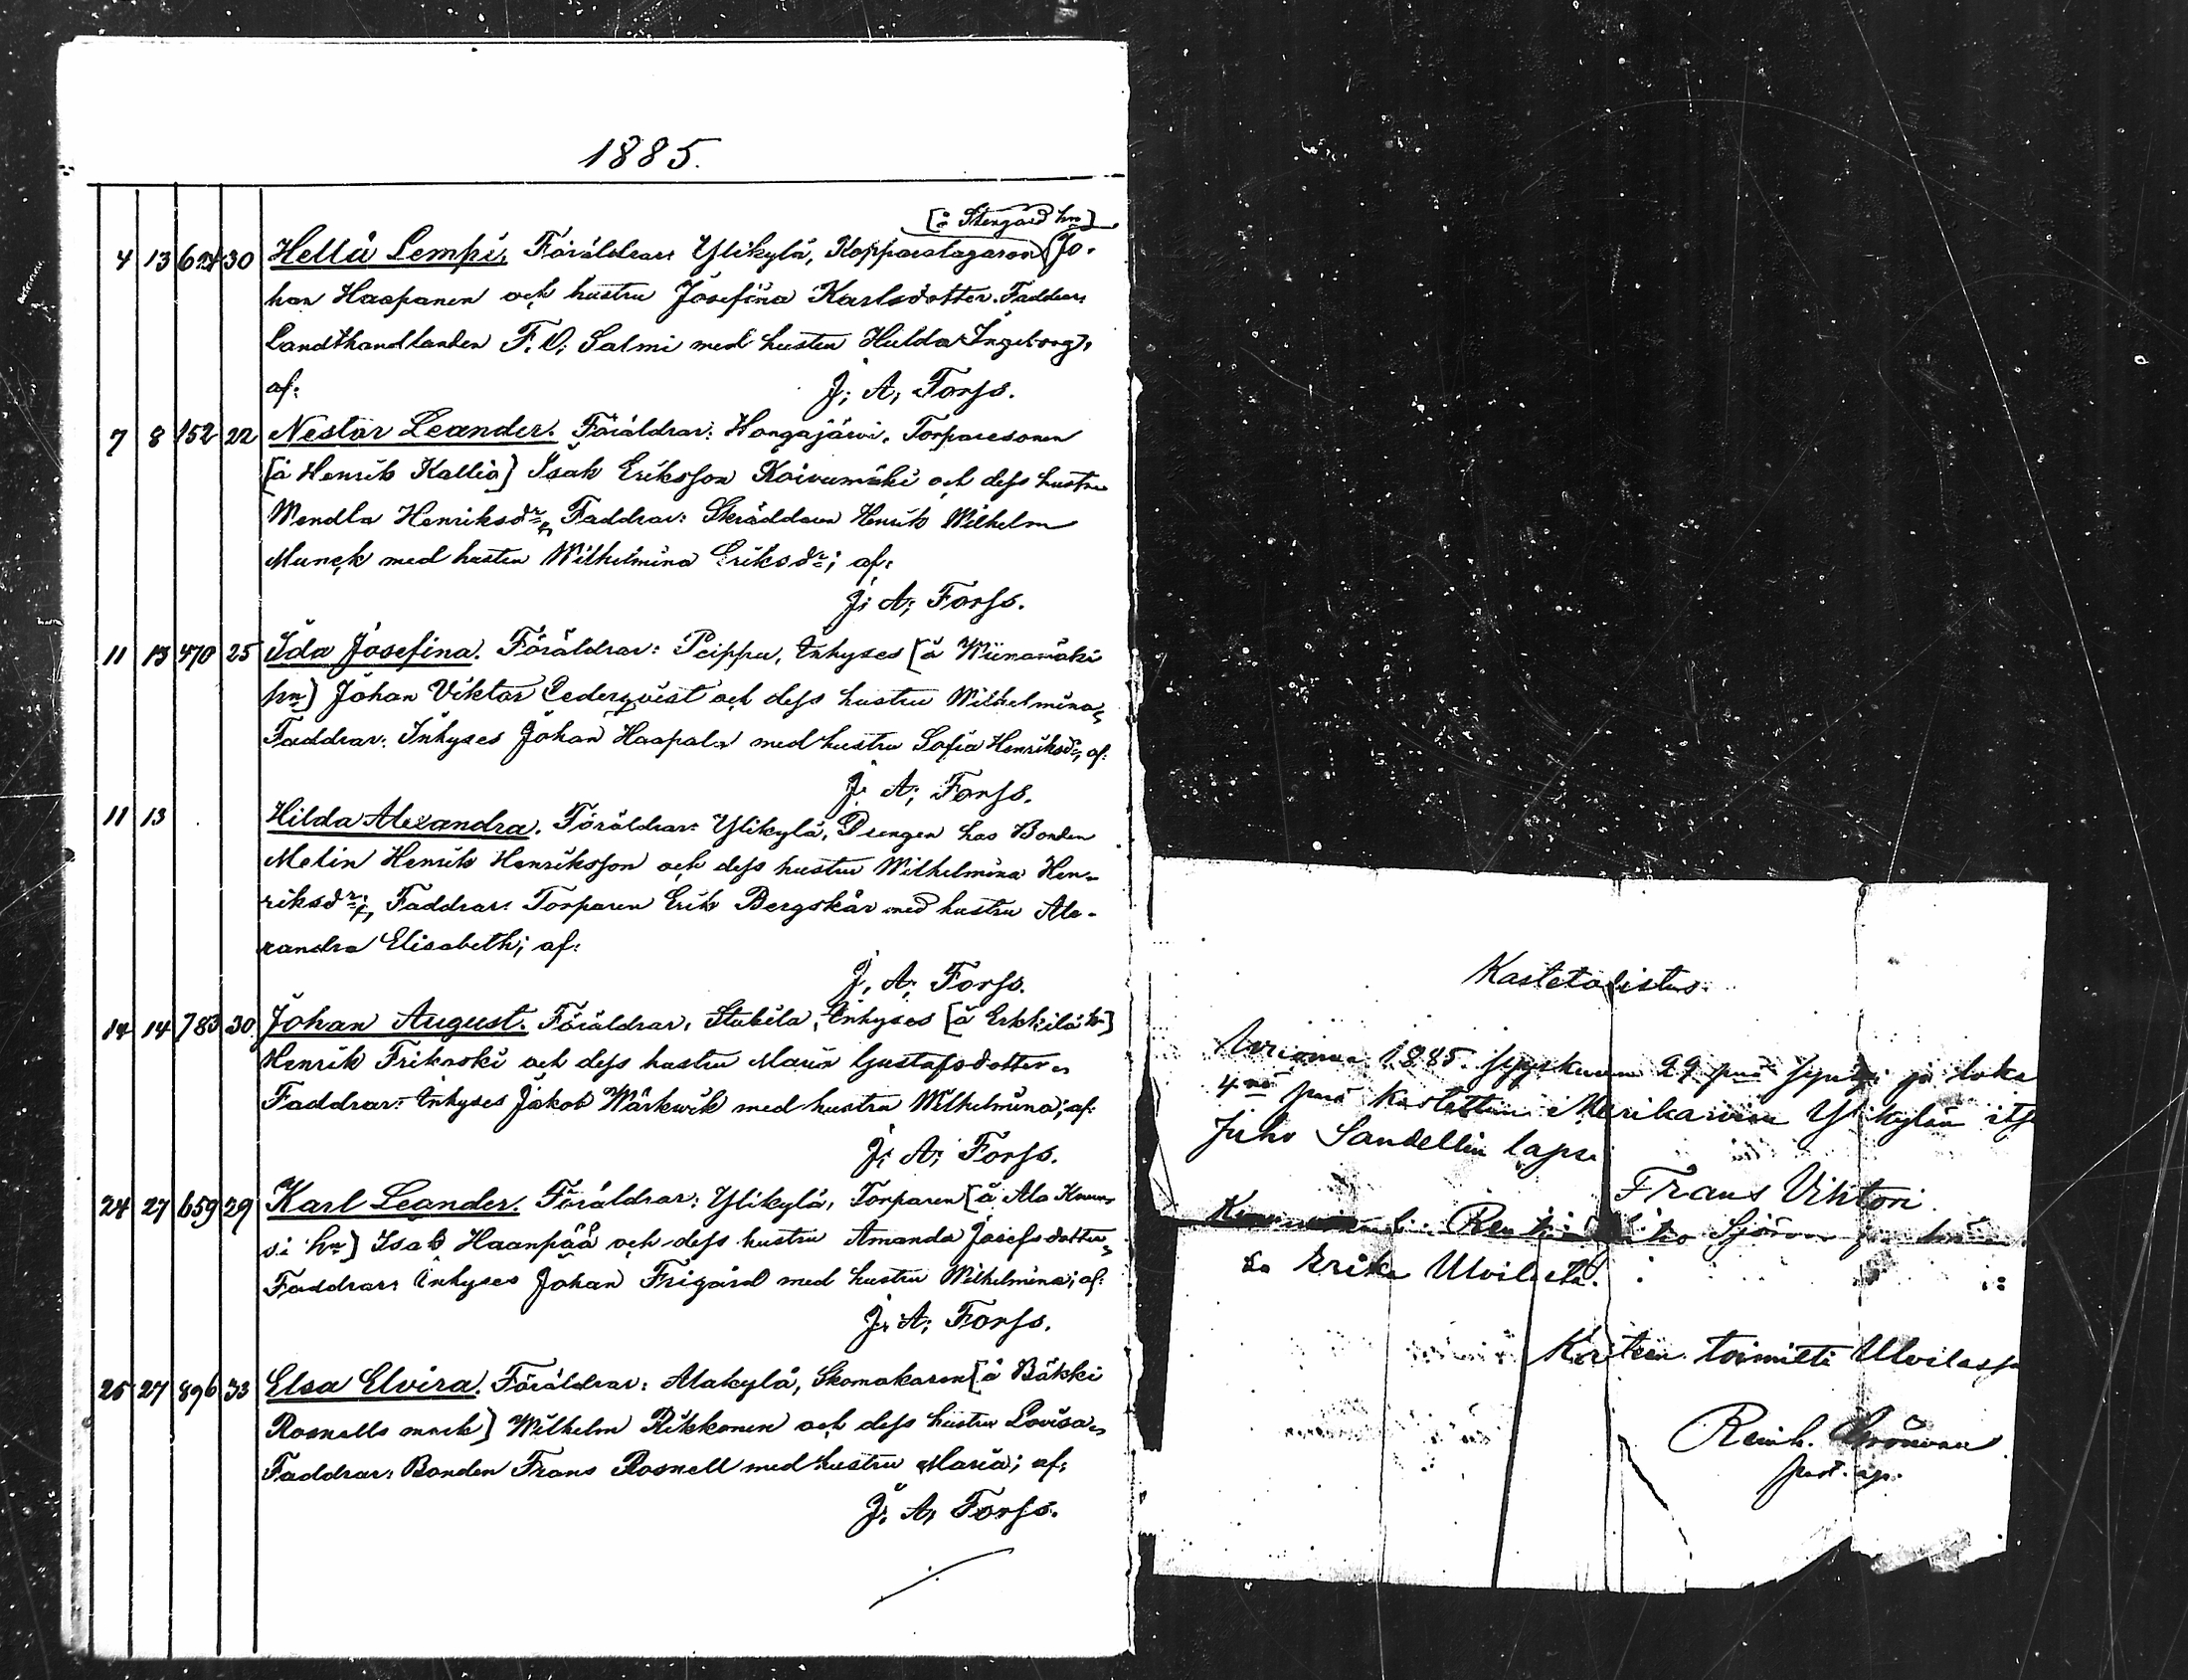 1885.
[å Stengård hn]
4 13 624 30 Hellä Lempi, Föräldrar: Ylikylä, Kopparslagaren (Jo-
han Haapanen och hustru Josefina Karlsdotter. Faddrar:
Landthandlanden F. O. Salmi med hustru Hulda Ingeborg,
af: J; A; Forss.
7 8 152 22 Nestor Leander. Föräldrar: Hongajärvi, Torparesonen
[å Henrik Kallio] Isak Eriksson Koivumäki och dess hustru
Wendla Henriksdr, Faddrar: Skräddaren Henrik Wilhelm
Munck med hustru Wilhelmina Eriksdr; af:
J; A; Forss.
11 13 470 25 Ida Josefina. Föräldrar: Peippu, Inhyses [å Wiinamäki
hn] Johan Viktor Cederqvist och dess hustru Wilhelmina,
Faddrar: Inhyses Johan Haapala med hustru Sofia Henriksdr, af:
J; A; Forss.
11 13 Hilda Alexandra. Föräldrar: Ylikylä, Drengen hos Bonden
Melin Henrik Henriksson och dess hustru Wilhelmina Hen-
riksdr, Faddrar: Torparen Erik Bergskär med hustru Ale-
xandra Elisabeth; af:
J, A; Forss.
14 14 783 30 Johan August. Föräldrar: Stubëla, Inhyses [å Erkkilä hn]
Henrik Friknoski och dess hustru Maria Gustafsdotter,
Faddrar: Inhyses Jakob Wärkwik med hustru Wilhelmina; af:
J; A; Forss.
24 27 659 29 Karl Leander. Föräldrar: Ylikylä, Torparen [å Ala Knuu-
si hn] Isak Haanpää och dess hustru Amanda Josefsdotter,
Faddrar: Inhyses Johan Frigård med hustru Wilhelmina; af:
J; A; Forss.
25 27 896 33 Elsa Elvira. Föräldrar: Alakylä, Skomakaren [å Bäkki
Rosnells mark] Wilhelm Rikkonen och dess hustru Lovisa,
Faddrar: Bonden Frans Rosnell med hustru Maria; af:
J; A; Forss.
Kastetodistus.
Vuonna 1885 syyskuun 29 pnä syntyi ja loka
4nä pnä kastettiin Merikarvian Ylikylän itse
Juho Sandellin lapsi
Frans Vihtori.
Sjöman
sa Erika Ulvilasta.
Kasteen toimitti Ulvilassa
Reinh. Grönvall
past. apl.